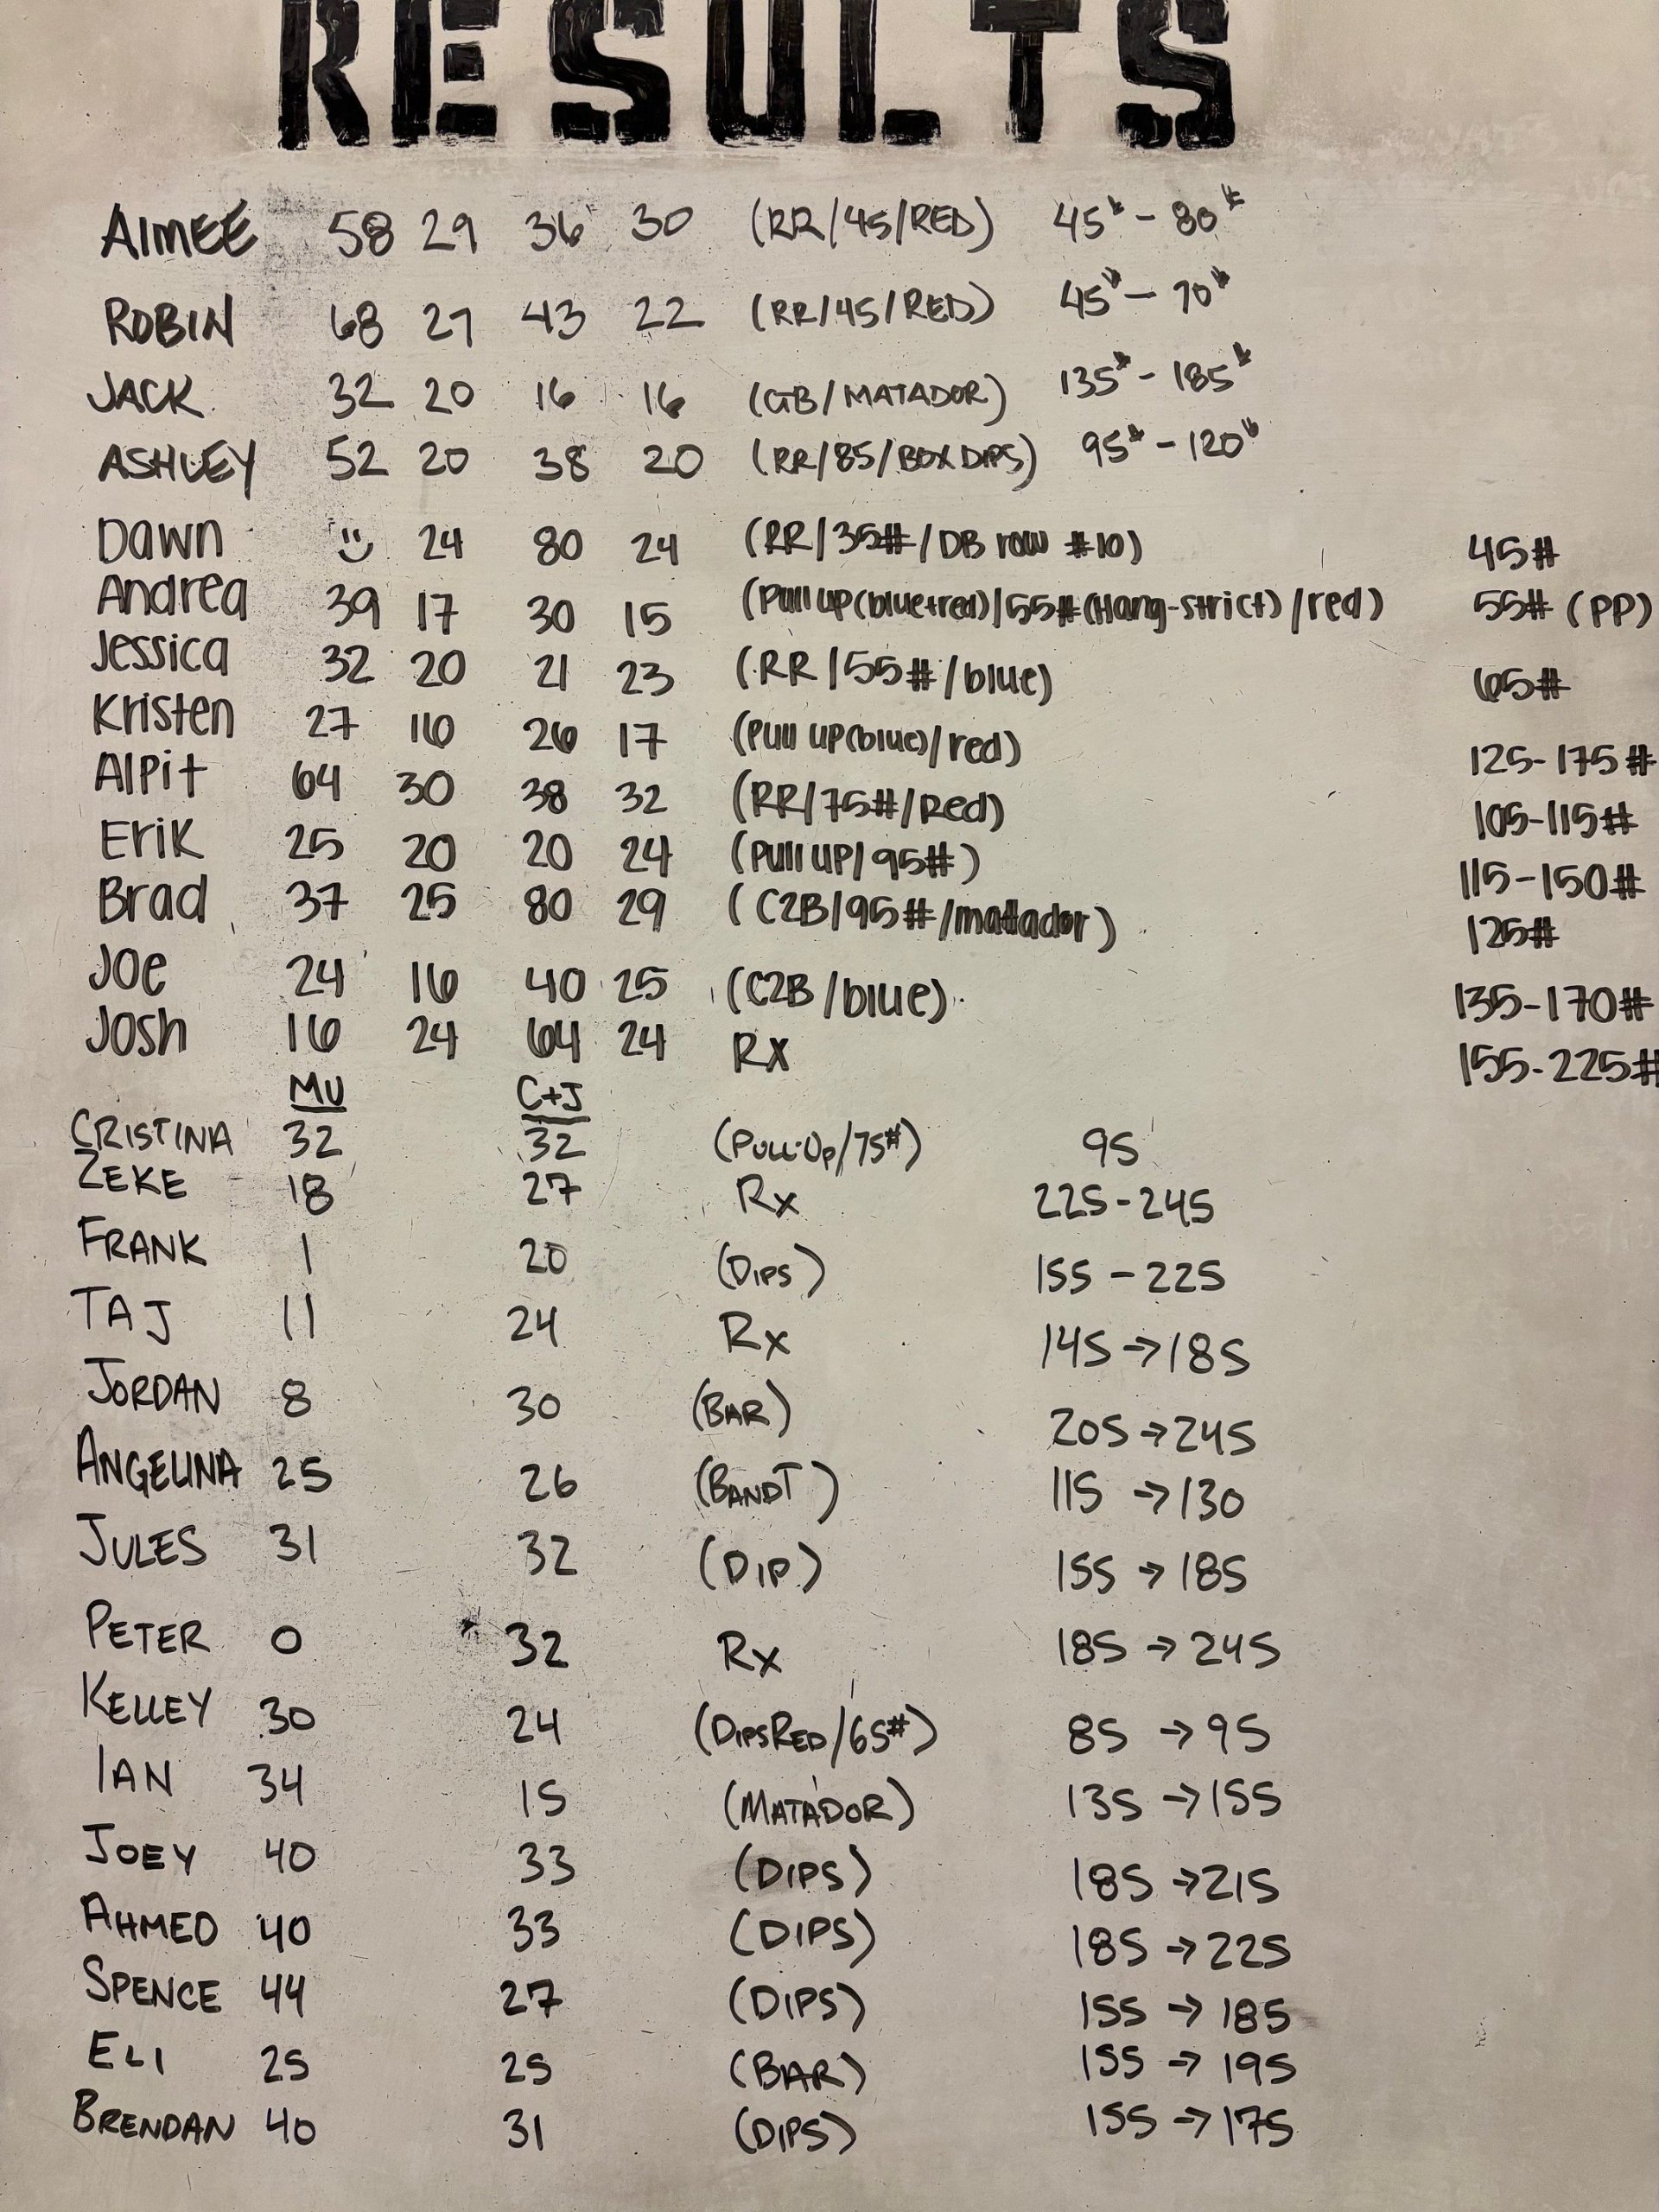 RESULTS
AIMEE 58 29 36 30 (RR/45/RED) 45# - 80#
ROBIN 68 27 43 22 (RR/45/RED) 45# - 70#
JACK 32 20 16 16 (GB/MATADOR) 135# - 185#
ASHLEY 52 20 38 20 (RR/85/BOX DIPS) 95# - 120#
Dawn 24 80 24 (RR/35#/DB row #10) 45#
Andrea 39 17 30 15 (Pull up (blue+red)/55# (Hang-strict)/red) 55# (PP)
Jessica 32 20 21 23 (RR/55#/blue) 65#
Kristen 27 16 26 17 (Pull up (blue)/red) 125-175#
Alpit 64 30 38 32 (RR/75#/Red) 105-115#
Erik 25 20 20 24 (Pull up/95#) 115-150#
Brad 37 25 80 29 (C2B/95#/mattador) 125#
Joe 24 16 40 25 (C2B/blue) 135-170#
Josh 16 24 64 24 RX 155-225#
MU C+J
CRISTINA 32 32 (PULL-UP/75#) 95
ZEKE 18 27 Rx 225-245
FRANK 1 20 (DIPS) 155-225
TAJ 11 24 Rx 145→185
JORDAN 8 30 (BAR) 205→245
ANGELINA 25 26 (BANDT) 115→130
JULES 31 32 (DIP) 155→185
PETER 0 32 Rx 185→245
KELLEY 30 24 (DIPS RED/65#) 85→95
IAN 34 15 (MATADOR) 135→155
JOEY 40 33 (DIPS) 185→215
AHMED 40 33 (DIPS) 185→225
SPENCE 44 27 (DIPS) 155→185
ELI 25 25 (BAR) 155→195
BRENDAN 40 31 (DIPS) 155→175